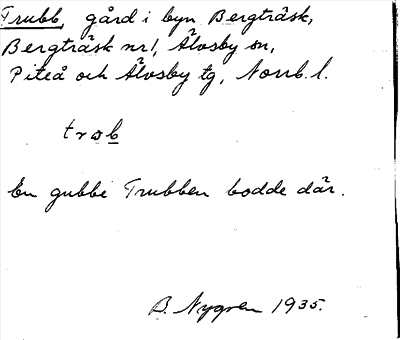 Trubb, gård i byn Bergträsk,
Bergträsk nr 1, Älvsby sn,
Piteå och Älvsby tg, Norrb. l.
trɷb
En gubbe Trubben bodde där.
B. Nygren 1935.